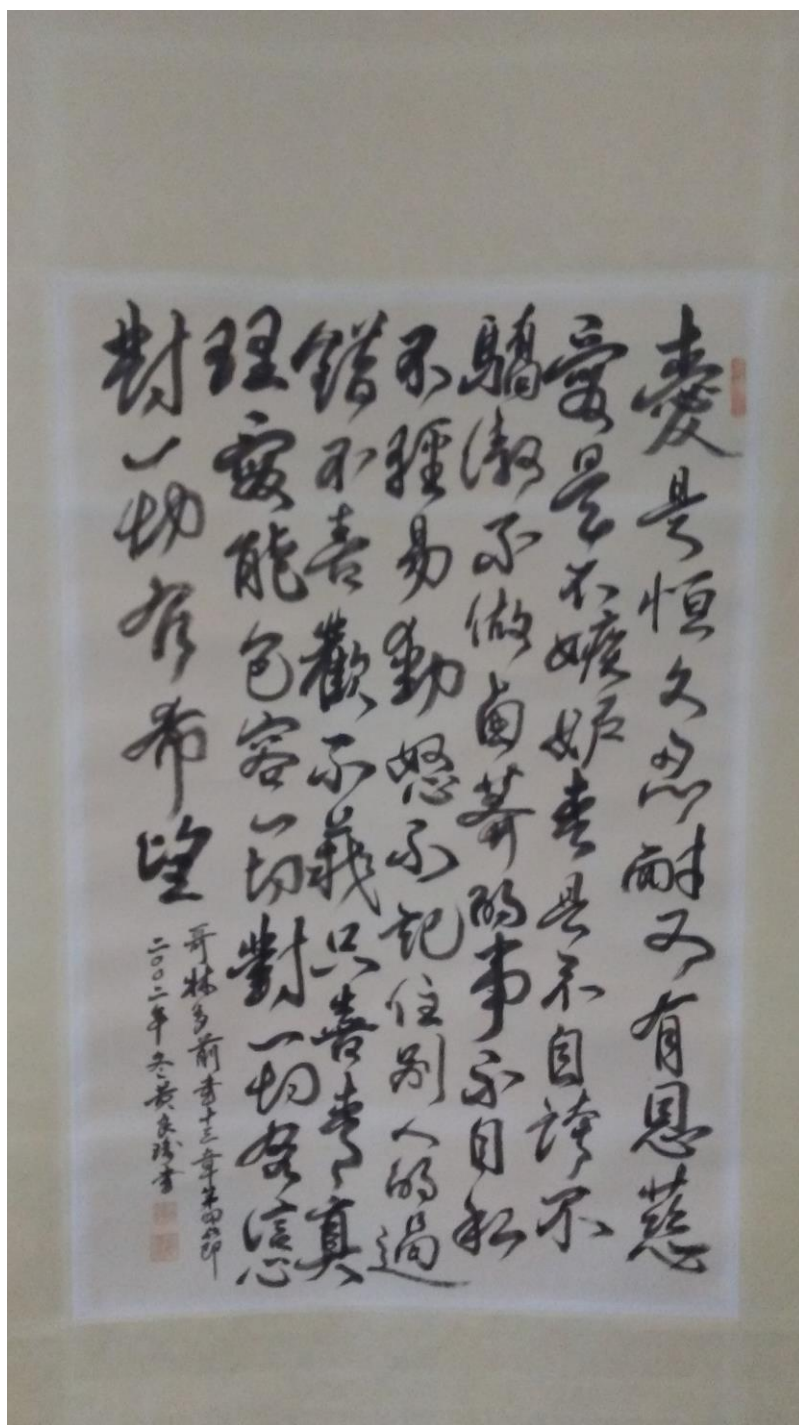 愛是恒久忍耐又有恩慈
愛是不嫉妒愛是不自誇不
驕傲不做鹵莽的事不自私
不輕易動怒不記住別人的過
錯不喜歡不義只喜愛真
理愛能包容一切對一切有信心
對一切有希望
哥林多前書十三章第四節
二〇〇二年冬黃良書